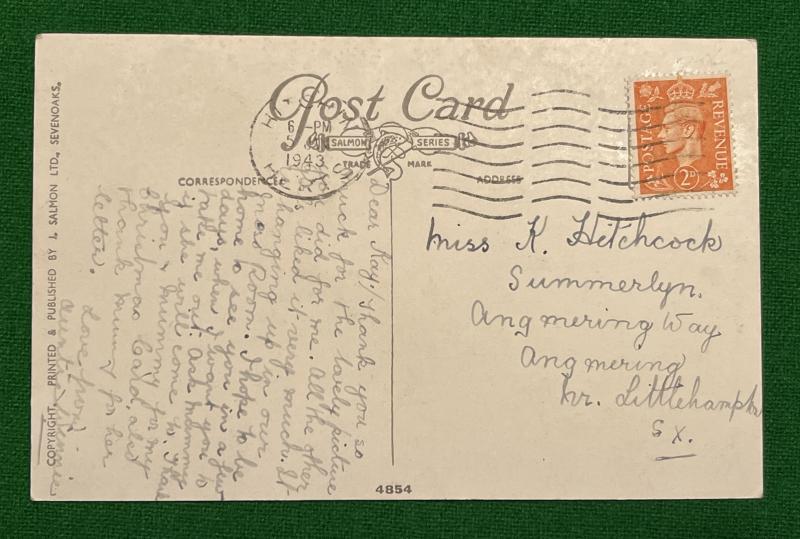 Post Card
SALMON SERIES
TRADE MARK
CORRESPONDENCE
ADDRESS
6 PM
1943
POSTAGE
REVENUE
2D
COPYRIGHT. PRINTED & PUBLISHED BY J. SALMON LTD., SEVENOAKS.
Dear Kay/ Thank you so
much for the lovely picture
you did for me. All the other
liked it very much. It
hanging up in our
Room. I hope to be
home to see you in a few
days, when I want you to
take me out. Ask Mummy
if she will come to. Thank
you & Mummy for my
Christmas Card. also
thank Mummy for her
letter.
Love from
Auntie Winnie
Miss K. Hitchcock
Summerlyn.
Angmering Way
Angmering
Nr. Littlehampton
Sx.
4854